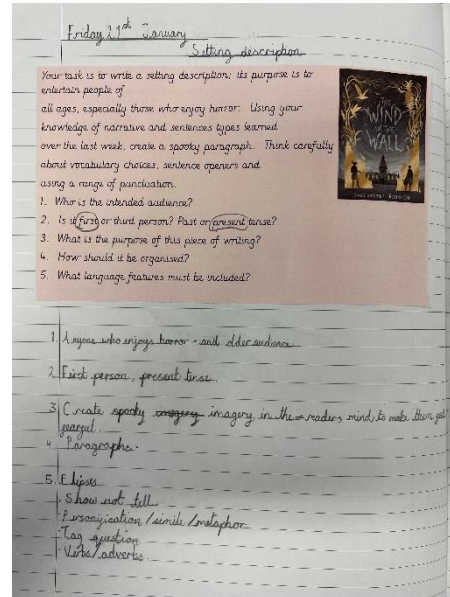 Friday 21st January
Setting description
Your task is to write a setting description; its purpose is to
entertain people of
all ages, especially those who enjoy horror. Using your
knowledge of narrative and sentences types learned
over the last week, create a spooky paragraph. Think carefully
about vocabulary choices, sentence openers and
using a range of punctuation.
1. Who is the intended audience?
2. Is it first or third person? Past or present tense?
3. What is the purpose of this piece of writing?
4. How should it be organised?
5. What language features must be included?
THE
WIND
IN THE
WALL
1. Anyone who enjoys horror - and older audience
2. First person, present tense
3. Create spooky imagery in the readers mind to make them feel
fearful.
4. Paragraphs.
5. Elipsis
· Show not tell
· Personification/simile/metaphor
· Tag question
· Verbs/adverbs